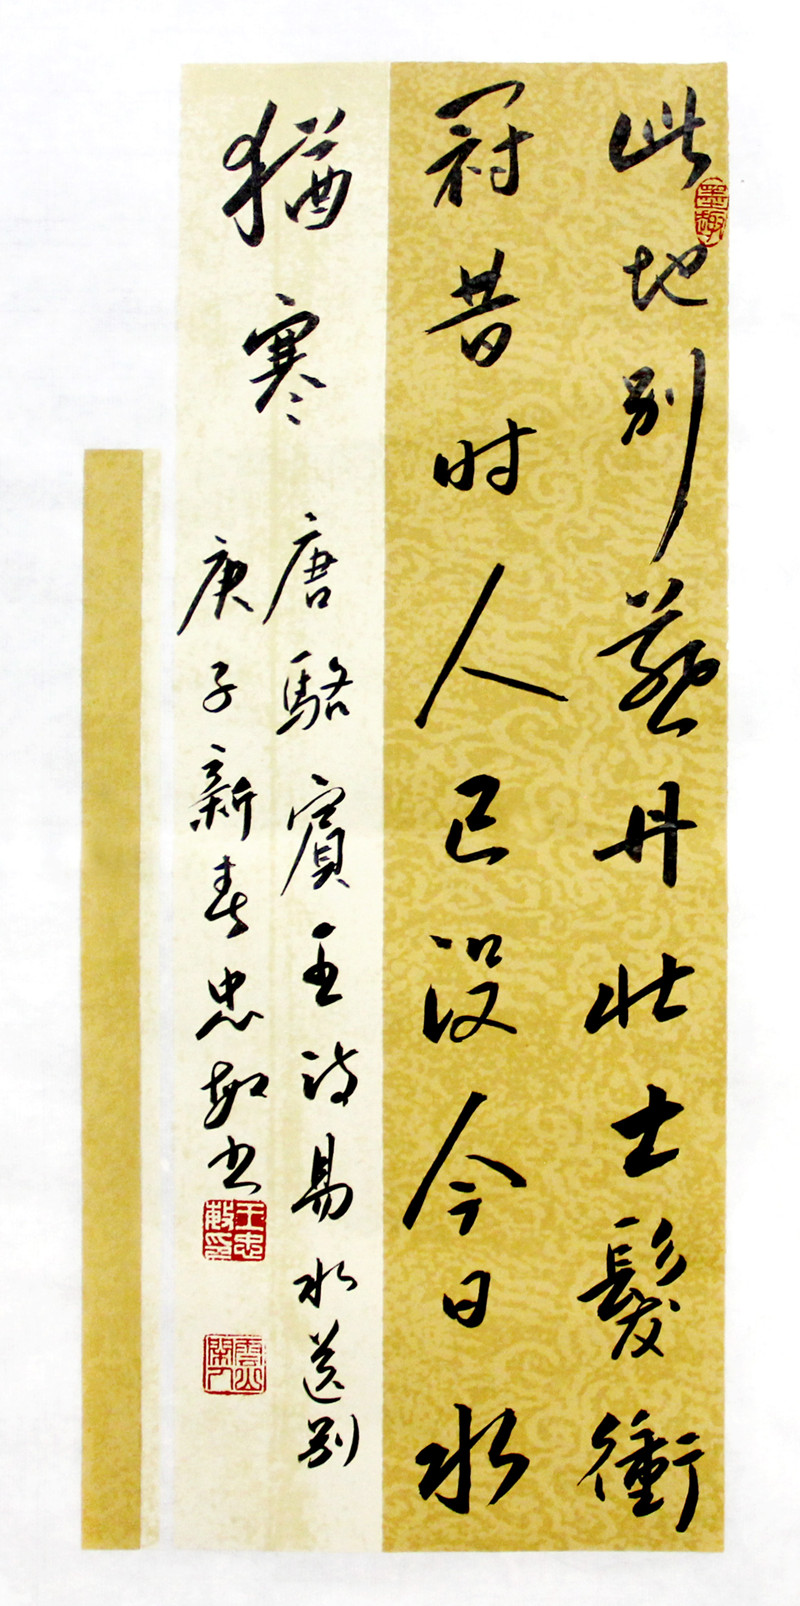 此地别燕丹壮士髮衝
冠昔时人已没今日水
猶寒
唐駱賓王诗易水送别
庚子新春忠敏书
墨趣
王忠敏印